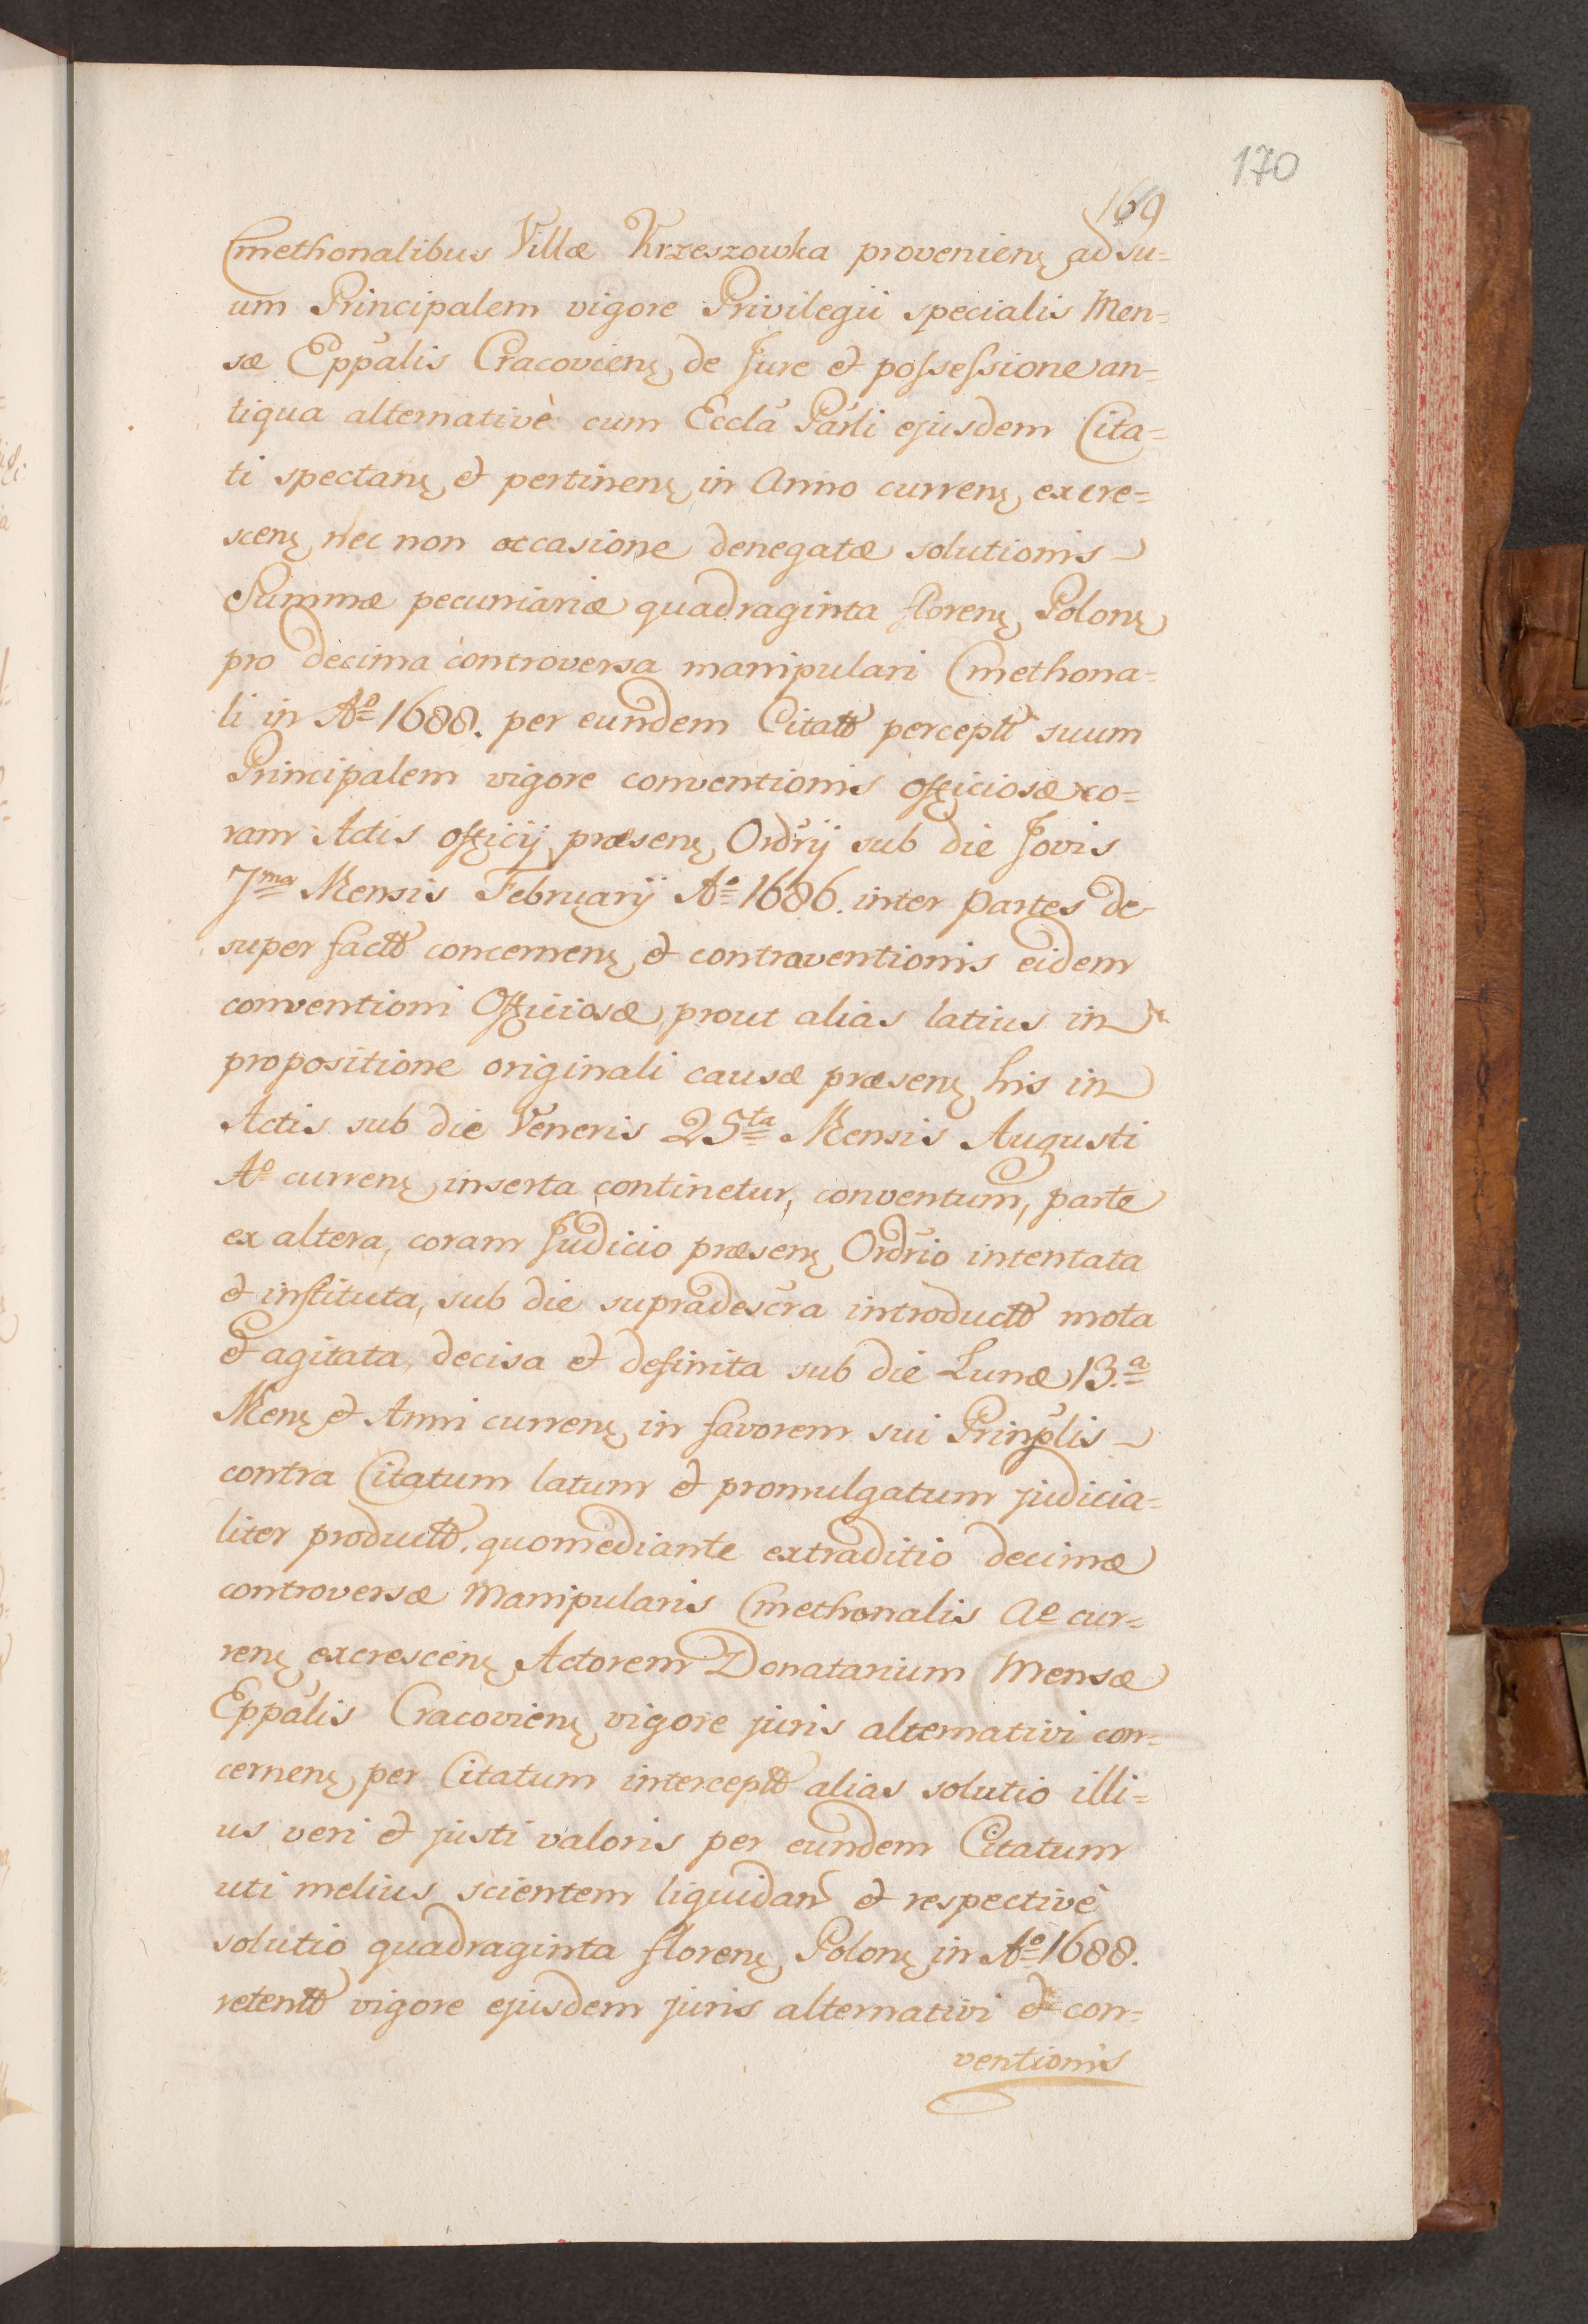 170
169
Cmethonalibus Villæ Krzeszowka provenienȩ ad su=
um Principalem vigore Privilegii specialis Men=
sæ Eppālis Cracovienȩ de Jure et possessione an=
tiqua alternativè cum Ecclā Parli ejusdem Cita=
ti spectanȩ et pertinenȩ in Anno currenȩ excre=
scenȩ nec non occasione denegatæ solutionis
Summæ pecuniariæ quadraginta florenȩ Polonȩ
pro decima controversa manipulari Cmethona=
li in Aº 1688. per eundem Citatt percептt suum
Principalem vigore conventionis officiosæ co=
ram Actis officij præsenȩ Ordrij sub die Jovis
7ma Mensis Februarij Aº 1686. inter partes de
super factt concernenȩ et contraventionis eidem
conventioni Officiosæ, prout alias latius in
propositione originali causæ præsenȩ his in
Actis sub die Veneris 25ta Mensis Augusti
Aº currenȩ inserta continetur, conventum, parte
ex altera, coram Judicio præsenȩ Ordrio intentata
et instituta, sub die supradescra introductt mota
et agitata, decisa et definita sub die Lunæ 13.a
Menȩ et Anni currenȩ in favorem sui Prinplis
contra Citatum latum et promulgatum judicia=
liter productt, quomediante extraditio decimæ
controversæ Manipularis Cmethonalis Aº cur=
renȩ excrescenȩ Actorem Donatarium Mensæ
Eppālis Cracovienȩ vigore juris alternativi con=
cernenȩ, per Citatum interceptt alias solutio illi=
us veri et justi valoris per eundem Citatum
uti melius scientem liquidan et respectivè
solutio quadraginta florenȩ Polonȩ in Aº 1688.
retentt vigore ejusdem juris alternativi et con=
ventionis